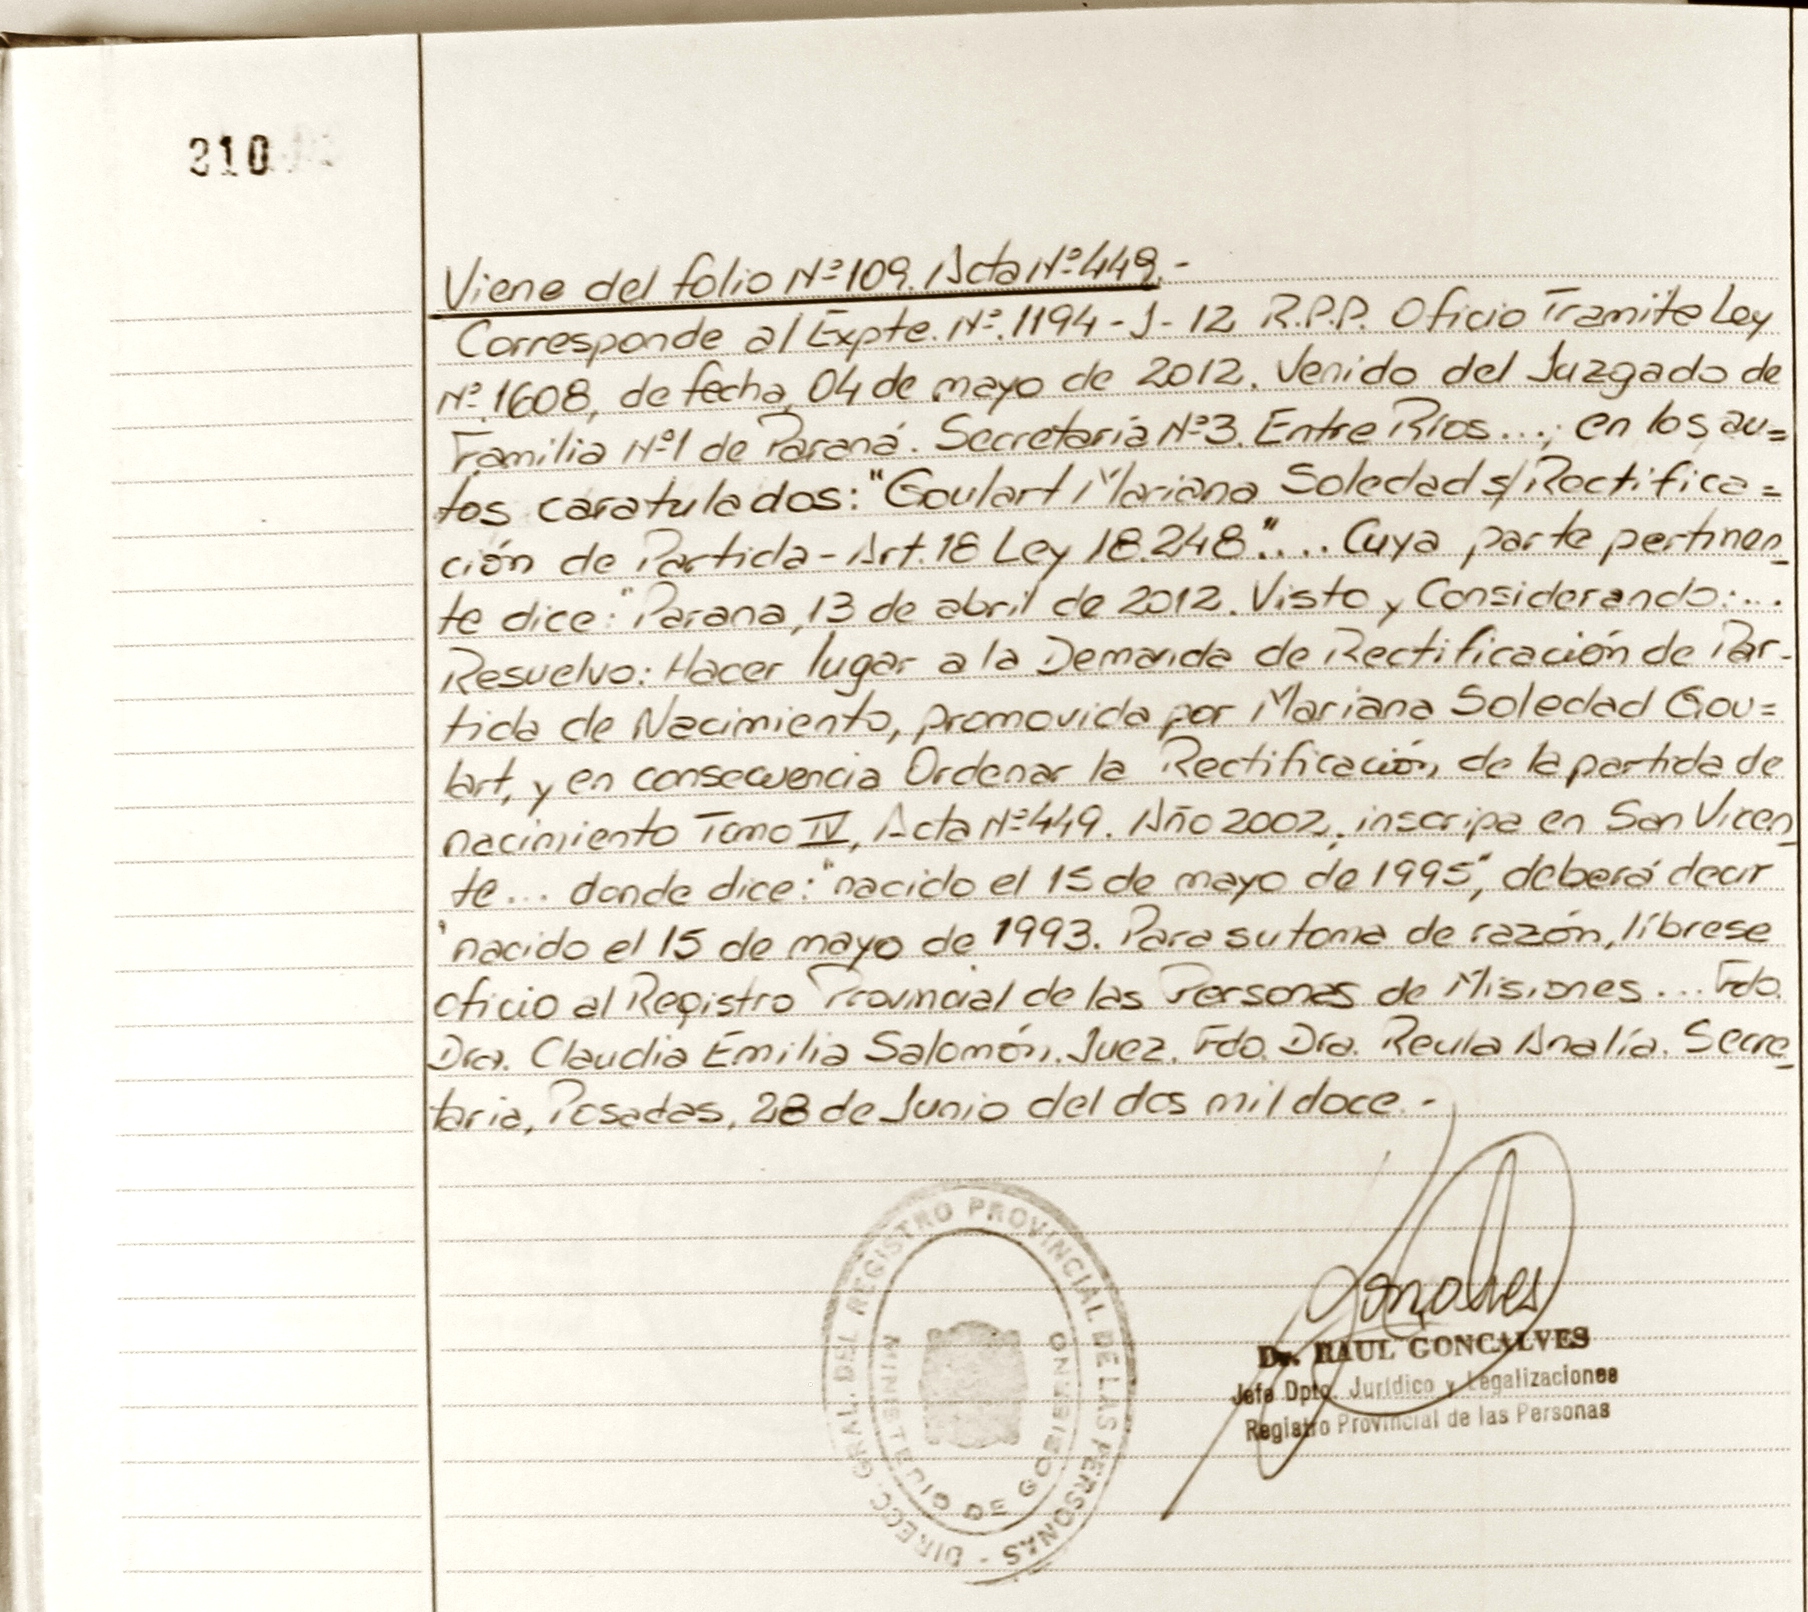 210
Viene del folio Nº 109. Acta Nº 449.-
Corresponde al Expte. Nº. 1194-J-12 R.P.P. Oficio Tramite Ley
Nº. 1608, de fecha, 04 de mayo de 2012. Venido del Juzgado de
Familia Nº1 de Paraná. Secretaría Nº3. Entre Ríos...; en los au=
tos caratulados: "Goulart Mariana Soledad s/Rectifica=
ción de Partida - Art. 18 Ley 18.248".... Cuya parte pertinen_
te dice: "Parana, 13 de abril de 2012. Visto y Considerando:...
Resuelvo: Hacer lugar a la Demanda de Rectificación de Par-
tida de Nacimiento, promovida por Mariana Soledad Gou=
lart, y en consecuencia Ordenar la Rectificación, de la partida de
nacimiento Tomo IV, Acta Nº 449. Año 2002, inscripa en San Vicen_
te... donde dice: "nacido el 15 de mayo de 1995", deberá decir
"nacido el 15 de mayo de 1993. Para su toma de razón, líbrese
oficio al Registro Provincial de las Personas de Misiones... Fdo.
Dra. Claudia Emilia Salomón. Juez. Fdo. Dra. Reula Analía. Secre_
taria, Posadas, 28 de Junio del dos mil doce.-
DIRECC. GRAL. DEL REGISTRO PROVINCIAL DE LAS PERSONAS -
MINISTERIO DE GOBIERNO
Goncalves
Dr. RAUL GONCALVES
Jefe Dpto. Jurídico y Legalizaciones
Registro Provincial de las Personas